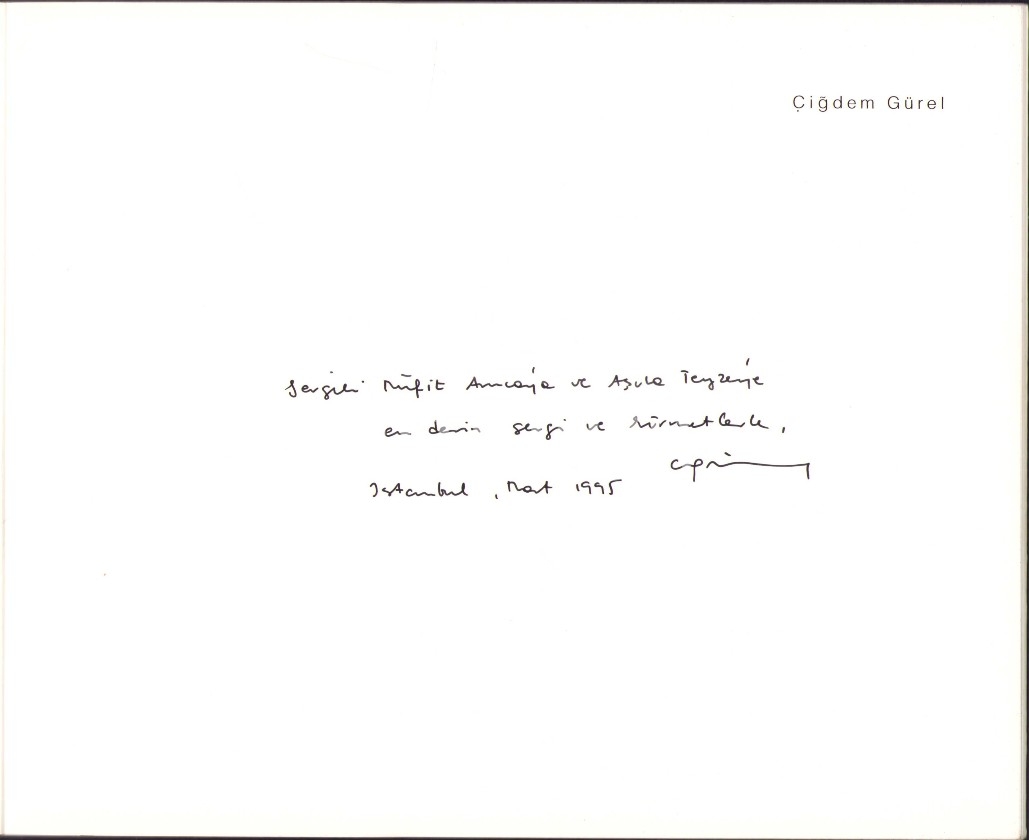 Çiğdem Gürel
Sevgili Müfit Amca'ya ve Teyze'ye
en derin sevgi ve hürmetlerle,
Istanbul, Mart 1995